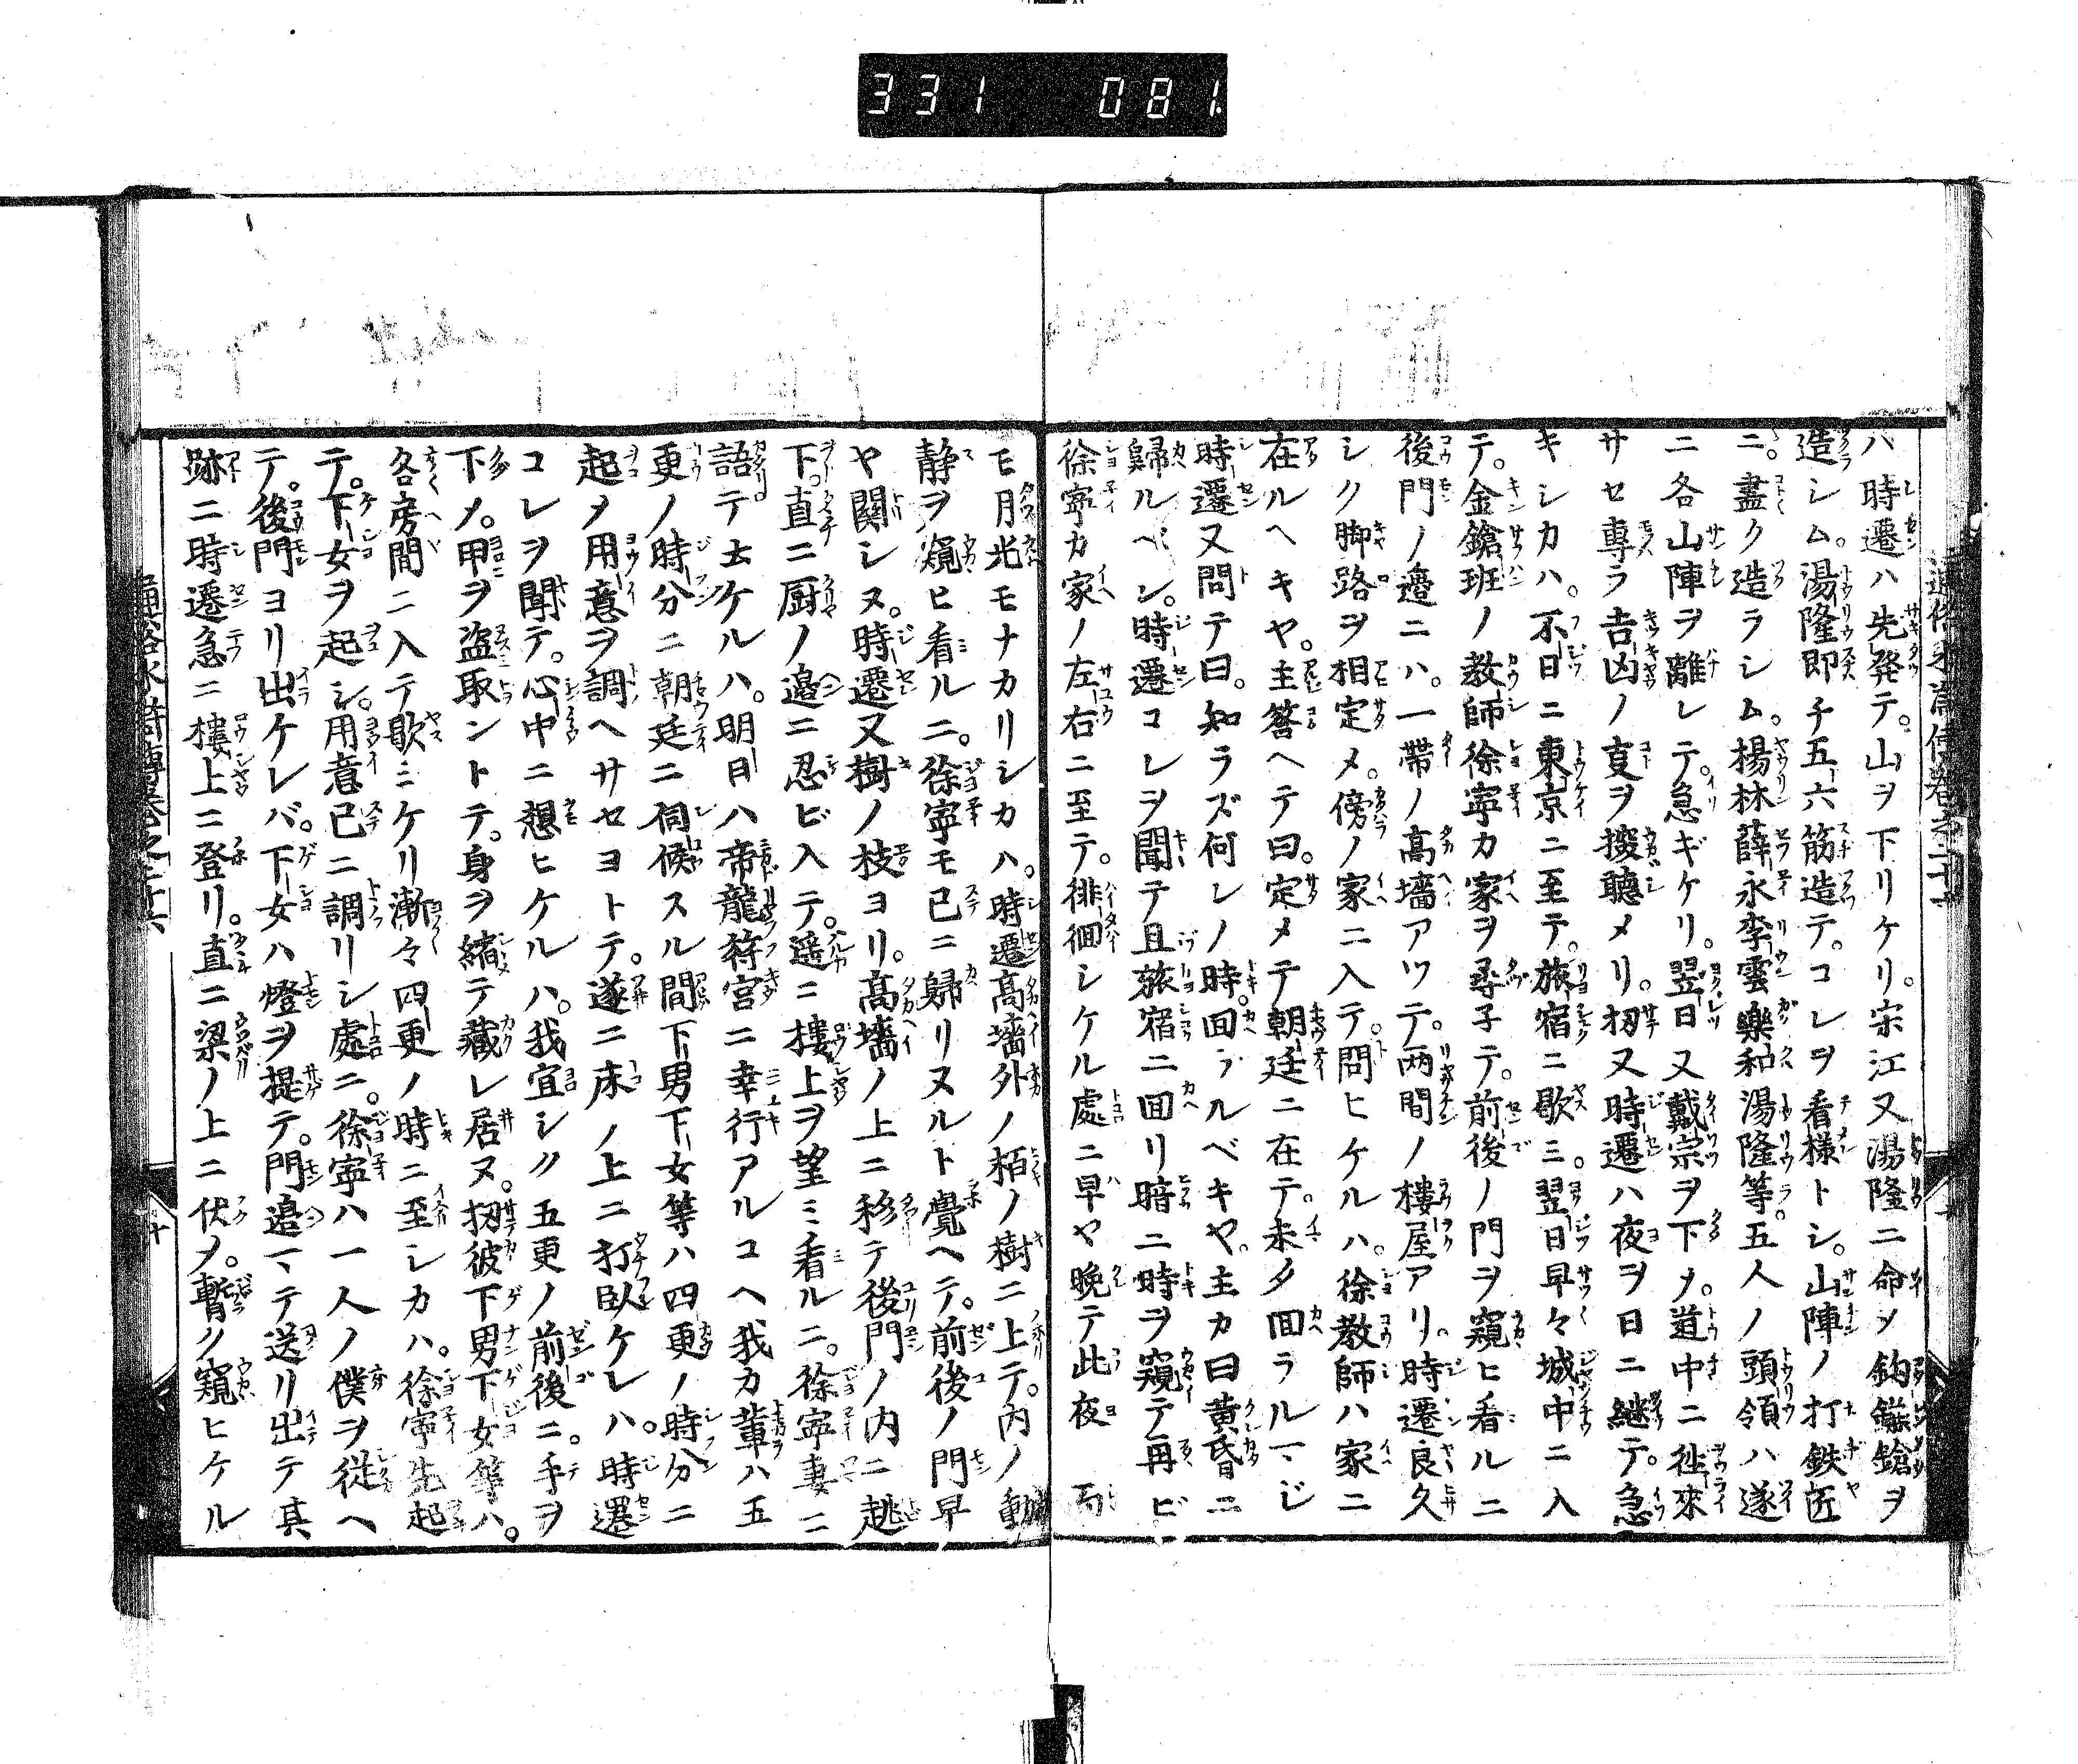 331 081
ハ時遷ハ先発テ。山ヲ下リケリ。宋江又湯隆ニ命メ鈎鎌鎗ヲ
造シム。湯隆即チ五六筋造テ。コレヲ看様トシ。山陣ノ打鉄匠
ニ。盡ク造ラシム。揚林薛永李雲樂和湯隆等。五人ノ頭領ハ遂
ニ各山陣ヲ離レテ。急ギケリ。翌日又戴宗ヲ下メ。道中ニ徃來
サセ專ラ吉凶ノ叓ヲ捜聽メリ。扨又時遷ハ夜ヲ日ニ継テ。急
キシカハ。不日ニ東京ニ至テ。旅宿ニ歇ミ。翌日早々城中ニ入
テ。金鎗班ノ教師徐寧カ家ヲ尋子テ。前後ノ門ヲ窺ヒ看ルニ
後門ノ邉ニハ。一帶ノ高墻アツテ。两間ノ樓屋アリ。時遷良久
シク脚路ヲ相定メ。傍ノ家ニ入テ。問ヒケルハ。徐教師ハ家ニ
在ルヘキヤ。主答ヘテ曰。定メテ朝廷ニ在テ。未タ回ラルマジ
時遷又問テ曰。知ラズ何レノ時。回ラルベキヤ。主カ曰黄昏ニ
歸ルヘシ。時遷コレヲ聞テ且旅宿ニ回リ暗ニ時ヲ窺テ再ビ
徐寧カ家ノ左右ニ至テ。徘徊シケル處ニ早ヤ晩テ此夜 而
モ月光モナカリシカハ。時遷高墻外ノ栢ノ樹ニ上テ。内ノ動
静ヲ窺ヒ看ルニ。徐寧モ已ニ歸リヌルト覺ヘテ。前後ノ門早
ヤ関シヌ。時遷又樹ノ枝ヨリ。高墻ノ上ニ移テ後門ノ内ニ趒
下。直ニ厨ノ邉ニ忍ビ入テ。遥ニ樓上ヲ望ミ看ルニ。徐寧妻ニ
語テ云ケルハ。明日ハ帝龍符宮ニ幸行アルコヘ我カ輩ハ五
更ノ時分ニ朝廷ニ伺候スル間下男下女等ハ四更ノ時分ニ
起メ用意ヲ調ヘサセヨトテ。遂ニ床ノ上ニ打臥ケレハ。時遷
コレヲ聞テ。心中ニ想ヒケルハ。我宜シク五更ノ前後ニ。手ヲ
下メ。甲ヲ盗取ントテ。身ヲ縮テ藏レ居ヌ。扨彼下男下女等ハ。
各房間ニ入テ歇ミケリ漸々四更ノ時ニ至シカハ。徐寧先起
テ。下女ヲ起シ。用意已ニ調リシ處ニ。徐寧ハ一人ノ僕ヲ従ヘ
テ。後門ヨリ出ケレバ。下女ハ燈ヲ提テ。門邉マテ送リ出テ其
跡ニ時遷急ニ樓上ニ登リ。直ニ梁ノ上ニ伏メ。暫ク窺ヒケル